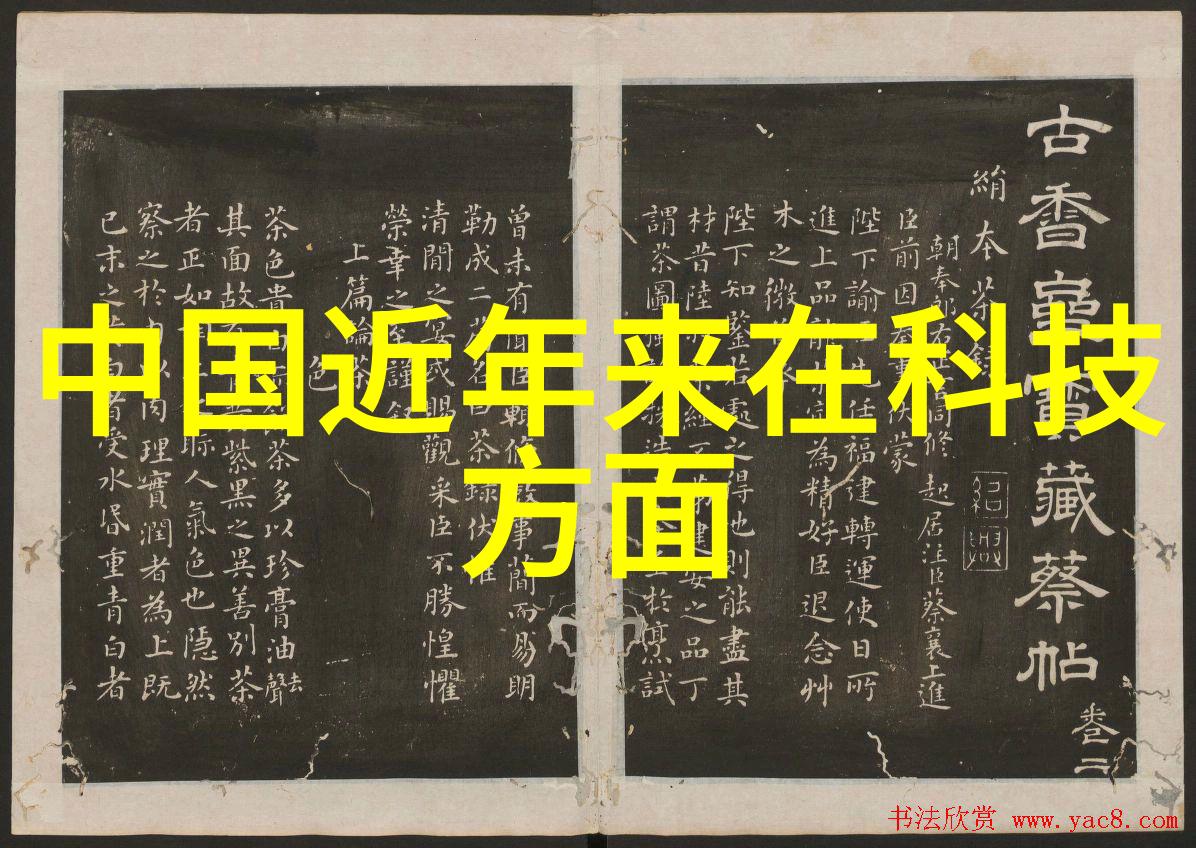 中国近年来在科技
方面
古香齋寶藏蔡帖
卷二
絹本茶錄
朝奉郎右正同修起居注臣蔡襄上進
臣前因奏事伏蒙
陛下諭先任福建轉運使日所
進上品龍茶為精好臣退念艸
木之微
陛下知鑒若處之得地則能盡其
材昔陸經不第建安之品丁
謂茶圖採造於烹試
曾未有聞臣輒條數事簡而易明
勒成二茶錄伏惟
清閒之宴或賜觀采臣不勝惶懼
榮幸之至謹敘
上篇論茶
色
茶色貴茶多以珍膏油去聲
其面故紫黑之異善別茶
者正如眎人氣色也隱然
察之於內以肉理實潤者為上既
已末之白者受水昏重青白者
书法欣赏 www.yac8.com